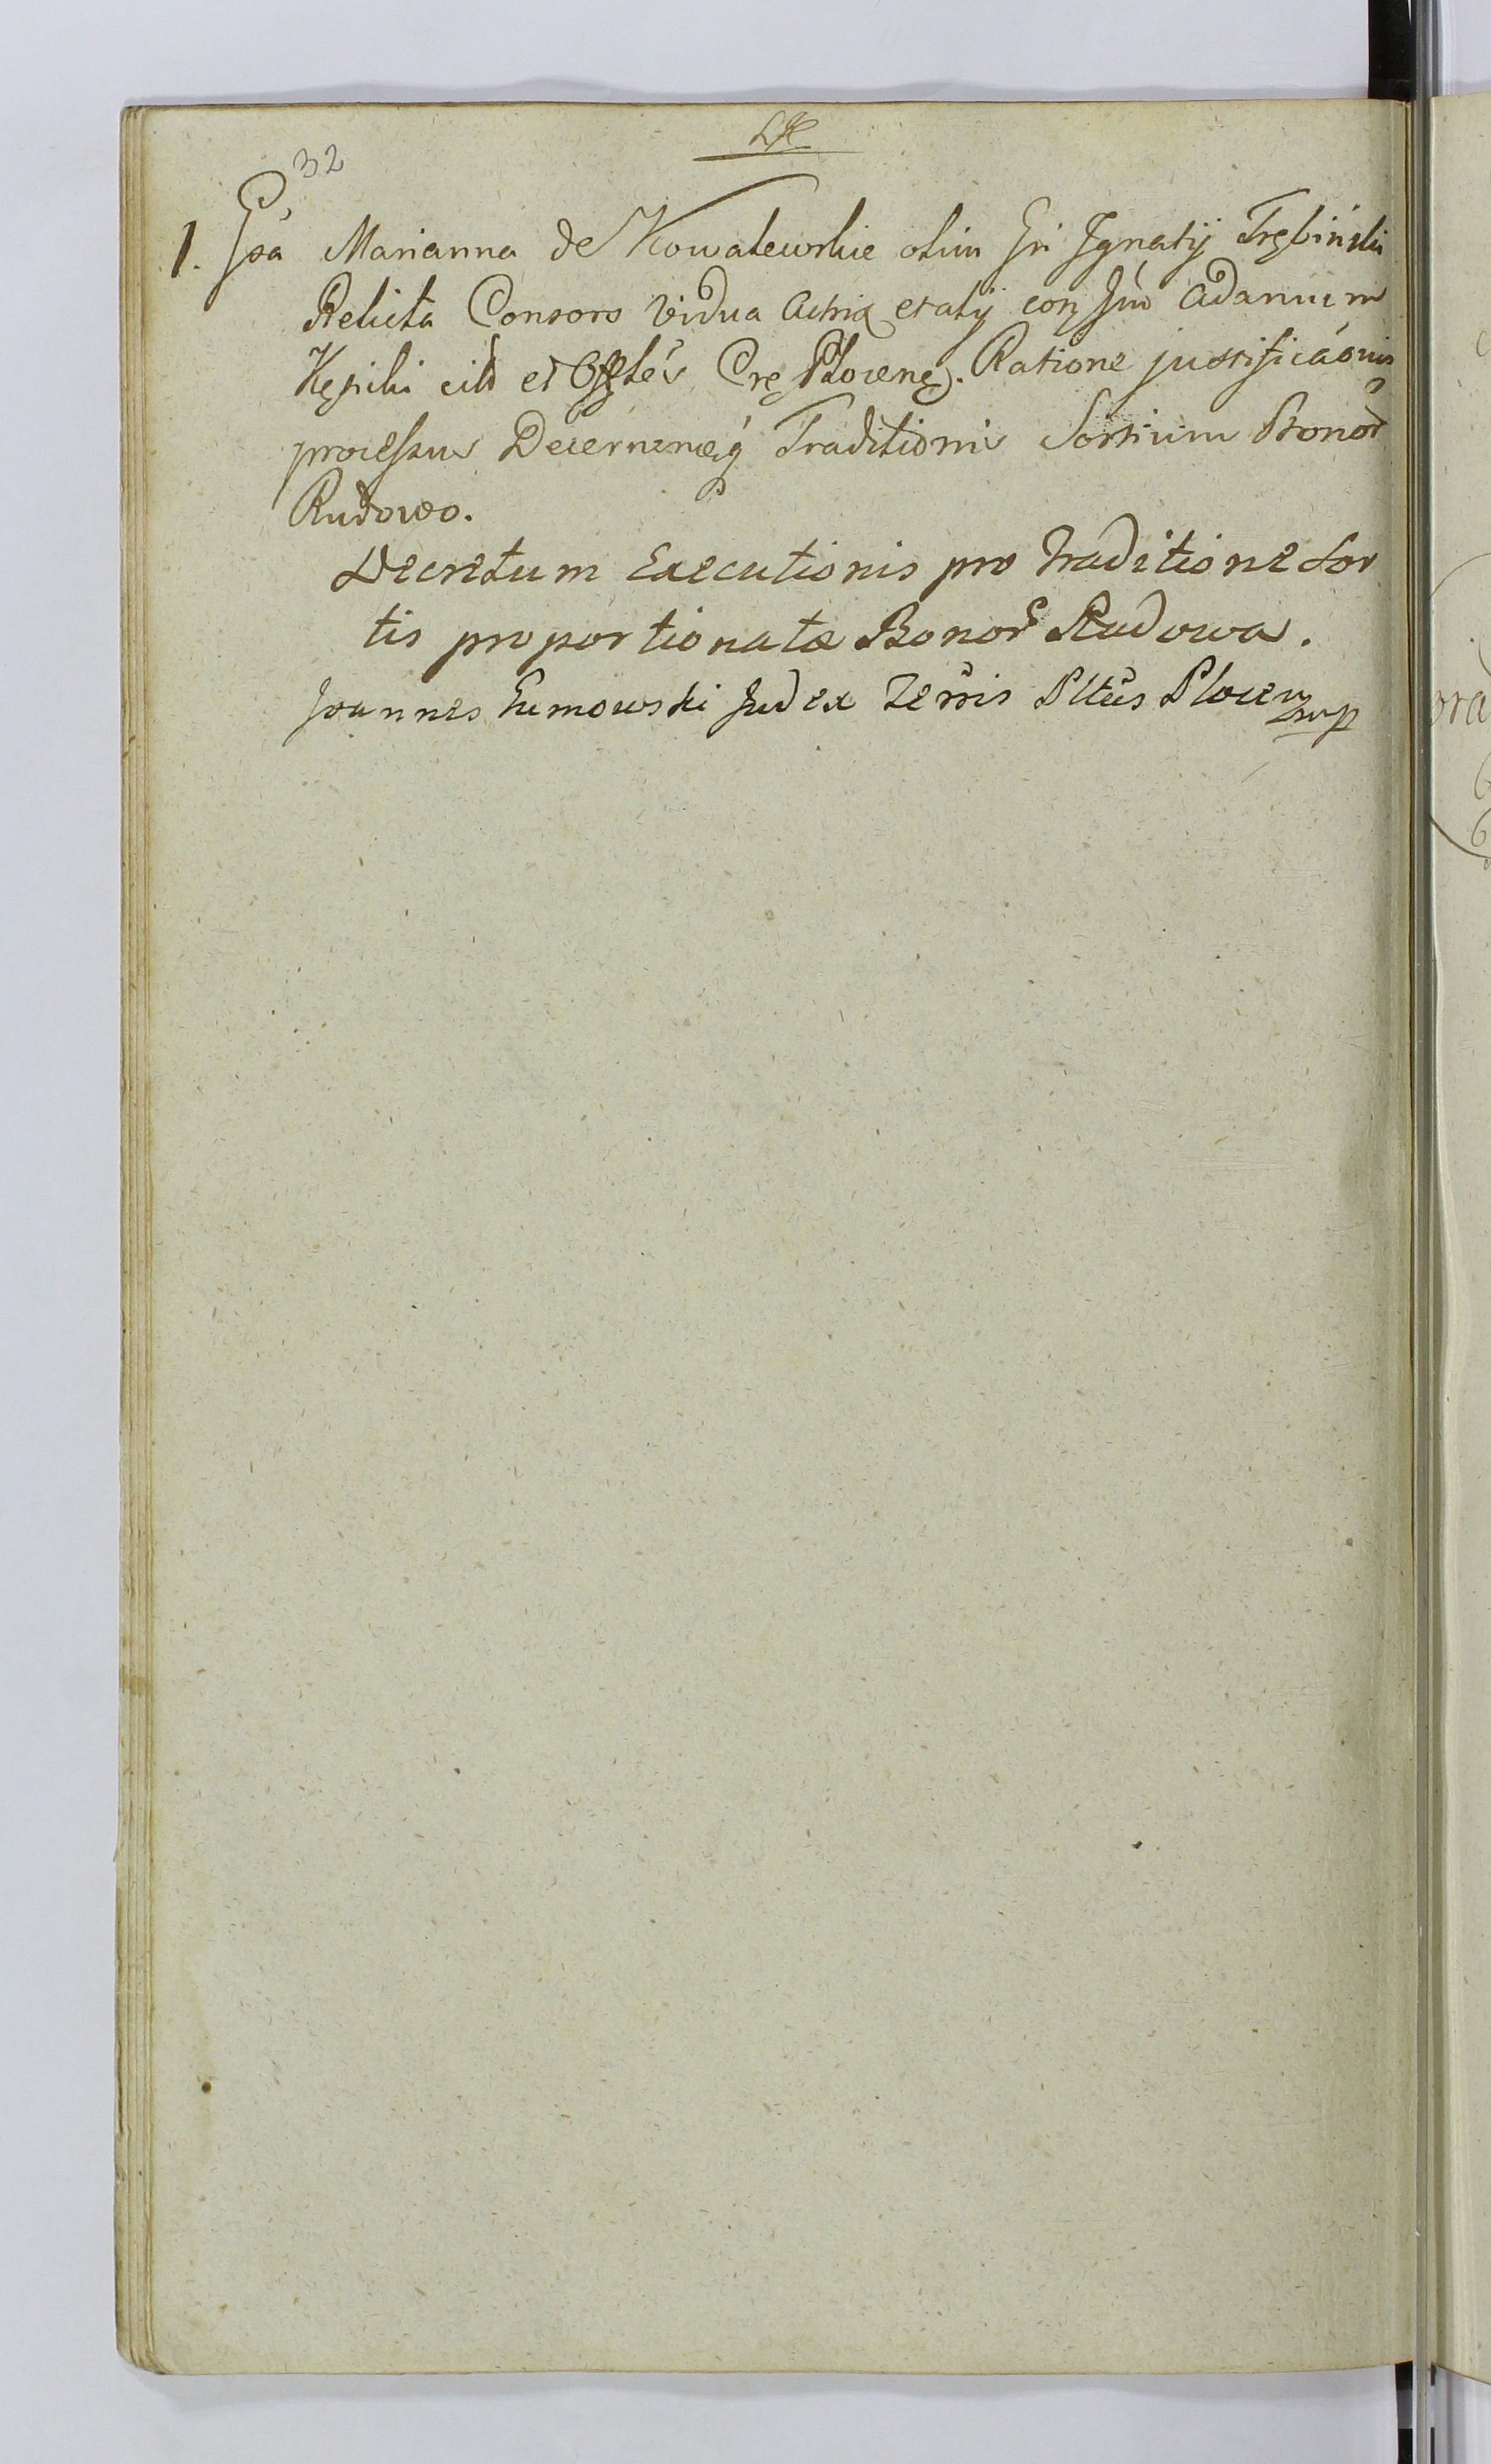 32
1. Gsa Marianna de Kowalewskie olim Gri Ignatij Trębiński
Relicta Consors Vidua Actrix et alij con Gūm Adamum
Kępiki cit et Offles Cre Plocenę. Ratione justificáonis
processus Decernendęq Traditionis Sortium Bonor
Rudowo.
Decretum Executionis pro traditione Sor
tis proportionatæ Bonor Rudowa.
Joannes Humowski Judex Terris Pltūs Plocen mp